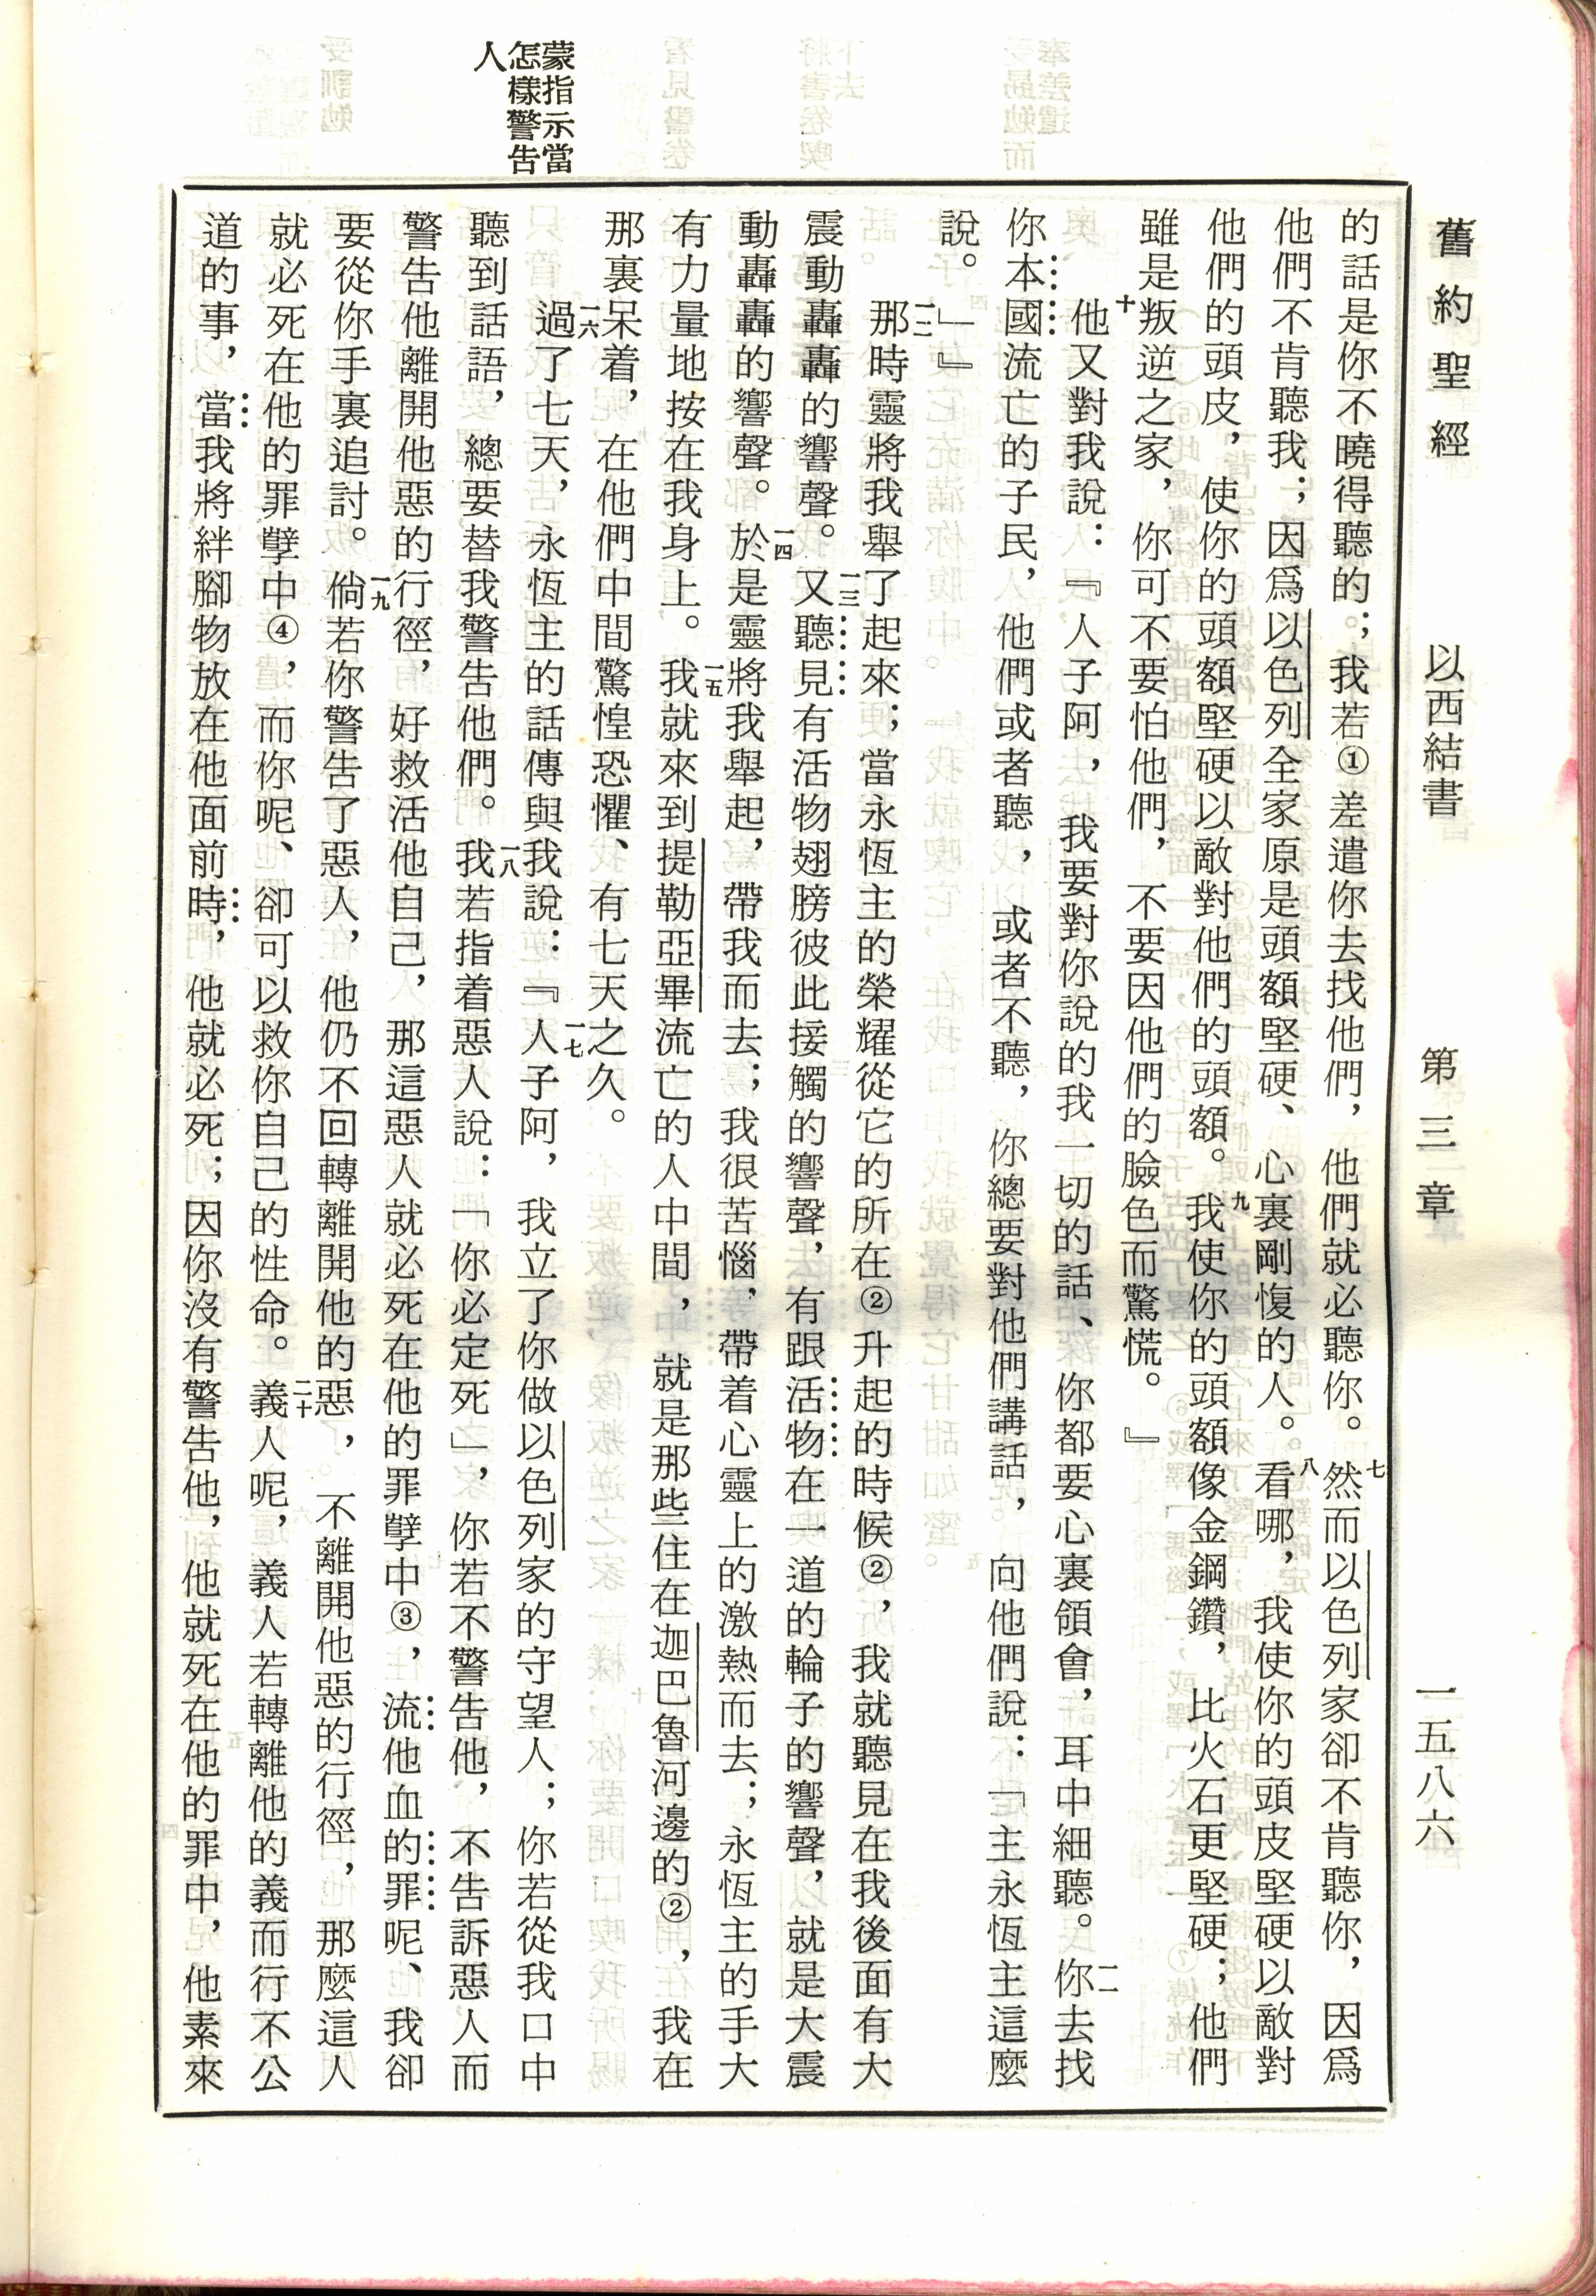 舊約聖經　以西結書　第三章　一五八六
蒙指示當
怎樣警告
人
的話是你不曉得聽的；我若①差遣你去找他們，他們就必聽你。七然而以色列家卻不肯聽你，因爲
他們不肯聽我；因爲以色列全家原是頭額堅硬、心裏剛愎的人。八看哪，我使你的頭皮堅硬以敵對
他們的頭皮，使你的頭額堅硬以敵對他們的頭額。九我使你的頭額像金鋼鑽，比火石更堅硬；他們
雖是叛逆之家，你可不要怕他們，不要因他們的臉色而驚慌。』
十他又對我說：『人子阿，我要對你說的我一切的話、你都要心裏領會，耳中細聽。一一你去找
你本國流亡的子民，他們或者聽，或者不聽，你總要對他們講話，向他們說：「主永恆主這麼
說。」』
一二那時靈將我舉了起來；當永恆主的榮耀從它的所在②升起的時候②，我就聽見在我後面有大
震動轟轟的響聲。一三又聽見有活物翅膀彼此接觸的響聲，有跟活物在一道的輪子的響聲，就是大震
動轟轟的響聲。一四於是靈將我舉起，帶我而去；我很苦惱，帶着心靈上的激熱而去；永恆主的手大
有力量地按在我身上。一五我就來到提勒亞畢流亡的人中間，就是那些住在迦巴魯河邊的②，我在
那裏呆着，在他們中間驚惶恐懼、有七天之久。
一六過了七天，永恆主的話傳與我說：『一七人子阿，我立了你做以色列家的守望人；你若從我口中
聽到話語，總要替我警告他們。一八我若指着惡人說：「你必定死」，你若不警告他，不告訴惡人而
警告他離開他惡的行徑，好救活他自己，那這惡人就必死在他的罪孽中③，流他血的罪呢、我卻
要從你手裏追討。一九倘若你警告了惡人，他仍不回轉離開他的惡，不離開他惡的行徑，那麼這人
就必死在他的罪孽中④，而你呢、卻可以救你自己的性命。二十義人呢，義人若轉離他的義而行不公
道的事，當我將絆腳物放在他面前時，他就必死；因你沒有警告他，他就死在他的罪中，他素來